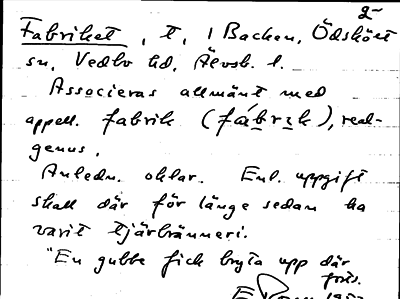 2~
Fabriket, t, i Backen, Ödskölt
sn, Vedbo hd, Älvsb. l.
Associeras allmänt med
appell. fabrik (fábrɪk), real-
genus.
Anledn. oklar. Enl. uppgift
skall där för länge sedan ha
varit tjärbränneri.
"En gubbe fick bryta upp där
forts.